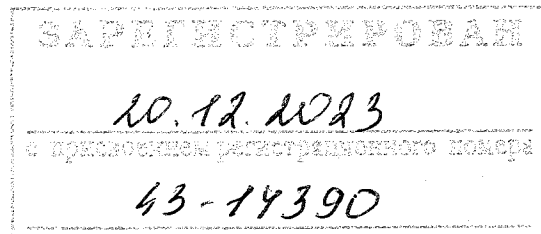 ЗАРЕГИСТРИРОВАН
20.12.2023
с присвоением регистрационного номера
43-14390